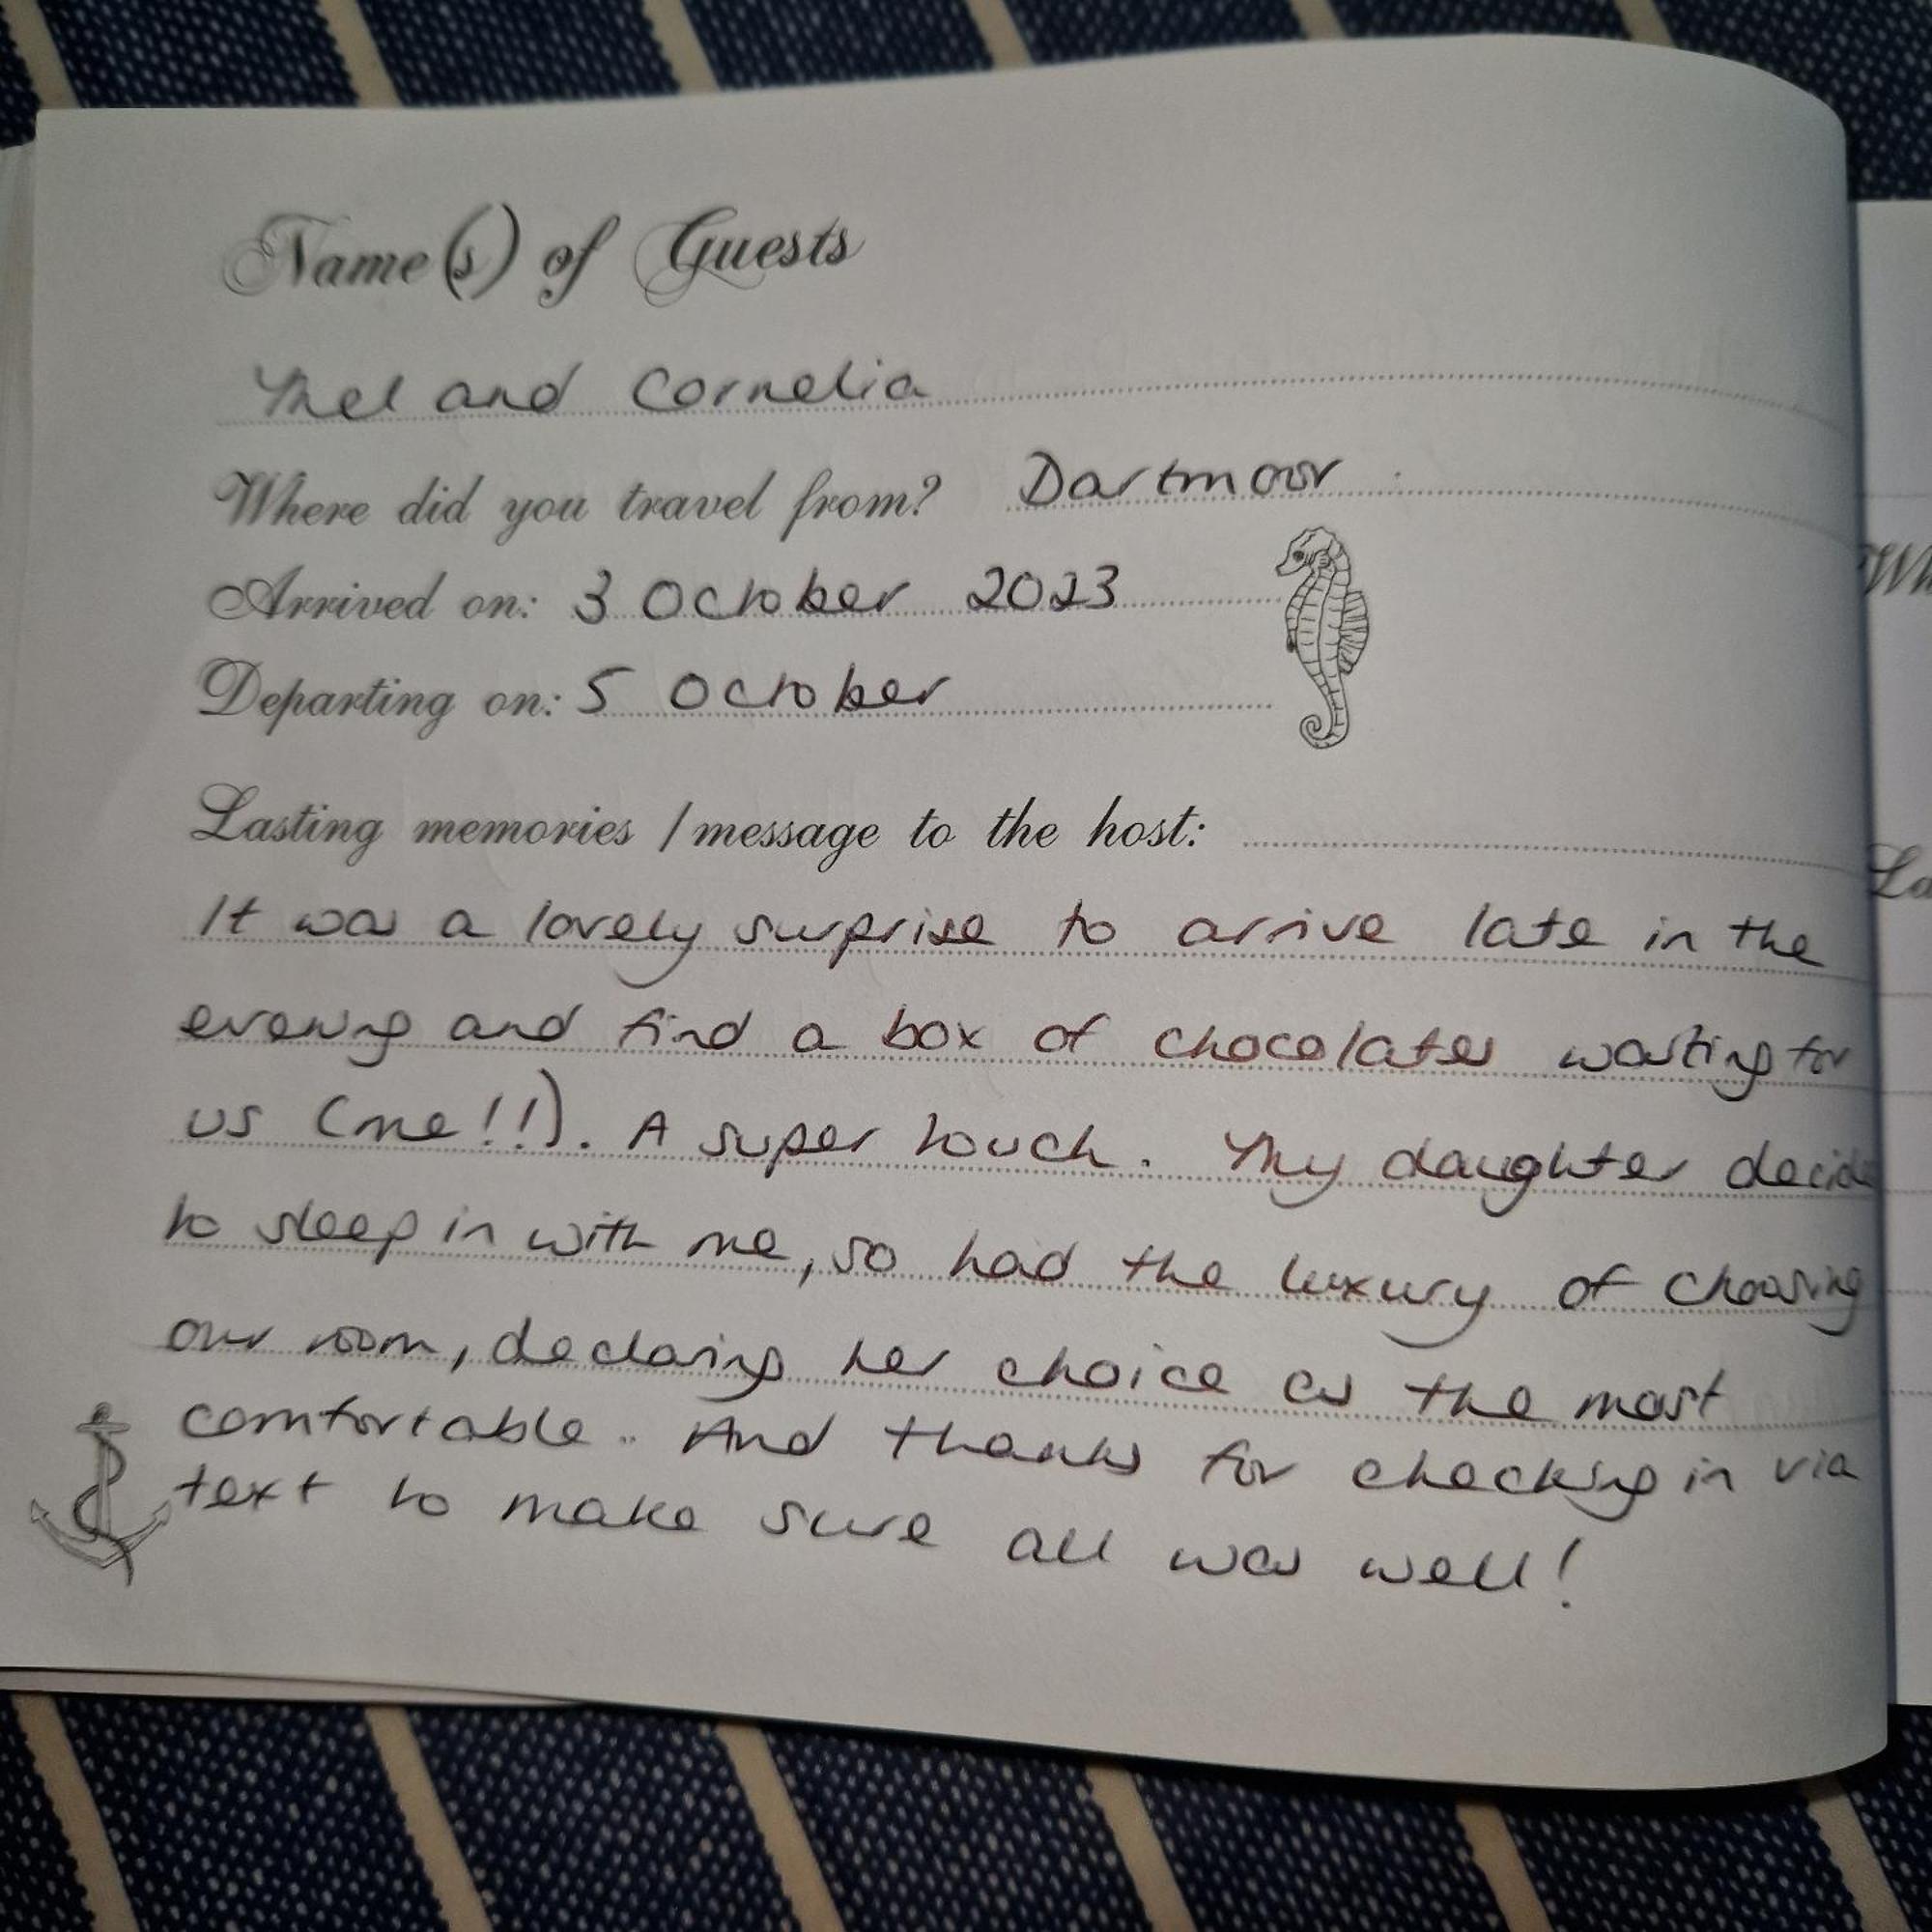 Name(s) of Guests
Mel and Cornelia
Where did you travel from? Dartmoor
Arrived on: 3 October 2023
Departing on: 5 October
Lasting memories / message to the host:
It was a lovely surprise to arrive late in the
evening and find a box of chocolates waiting for
us (me!!). A super touch. My daughter decid
to sleep in with me, so had the luxury of choosing
our room, declaring her choice as the most
comfortable.. And thanks for checking in via
text to make sure all was well!
Wh
La